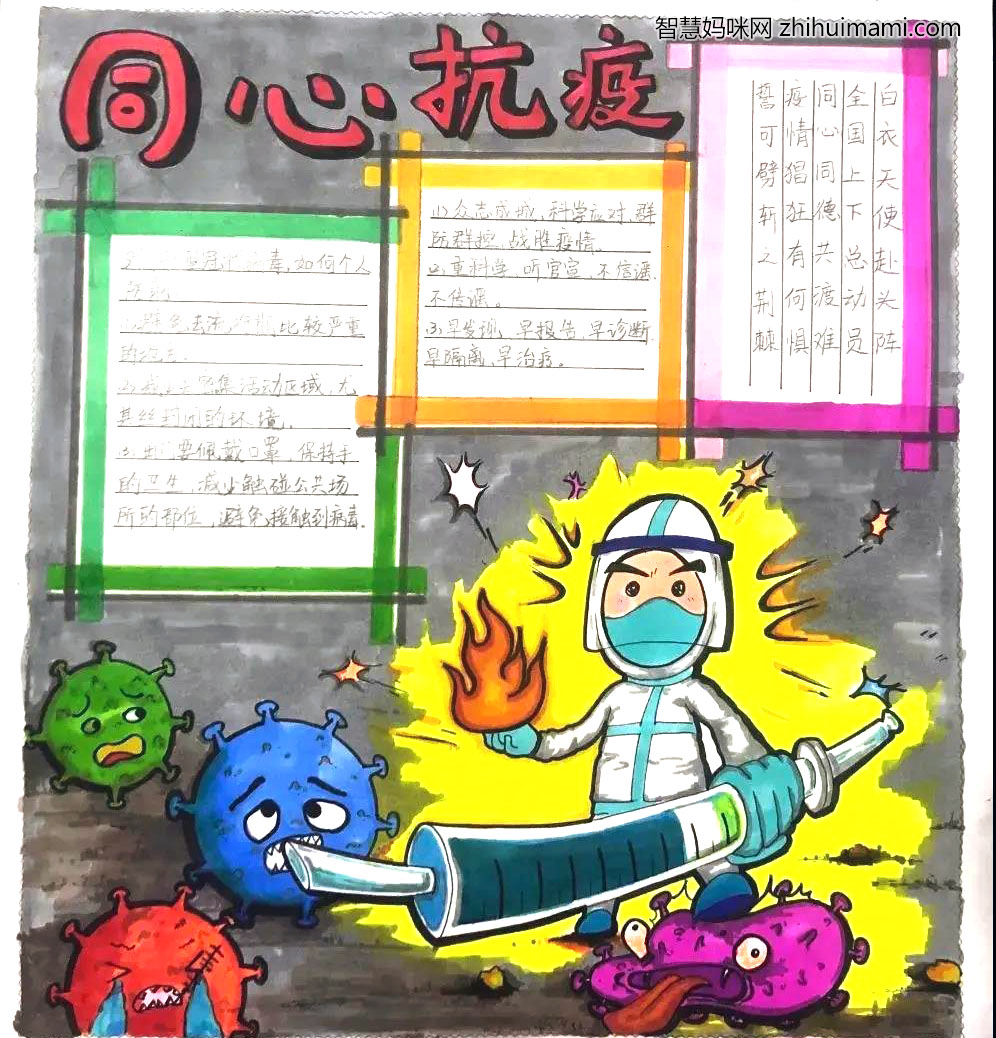 智慧妈咪网 zhihuimami.com
同心抗疫
病毒,如何个人
比较严重
的
密集活动区域,尤
其 封闭的环境.
要佩戴口罩,保持手
的卫生,减少触碰公共场
所的部位,避免接触到病毒.
(1)众志成城,科学应对,群
防群控,战胜疫情.
(2)重科学,听官宣,不信谣.
不传谣。
(3)早发现,早报告,早诊断
早隔离,早治疗。
白衣天使赴头阵
全国上下总动员
同心同德共渡难
疫情猖狂有何惧
誓可劈斩之荆棘